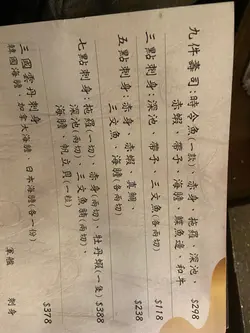 九件壽司:時令魚(一款)、赤身、拖羅、深池
赤蝦、帶子、海膽、鰈魚邊、和牛 $298
三點刺身:深池、帶子、三文魚(各兩切) $118
五點刺身:赤身、赤蝦、真鯛、
三文魚、海膽(各兩切) $238
七點刺身:拖羅(一切)、赤身(兩切)、牡丹蝦(一隻) $388
深池(兩切)、三文魚腩(兩切)、
海膽、帆立貝(一粒)
三國雲丹刺身
韓國海膽、加拿大海膽、日本海膽(各一份) $378
軍艦 刺身